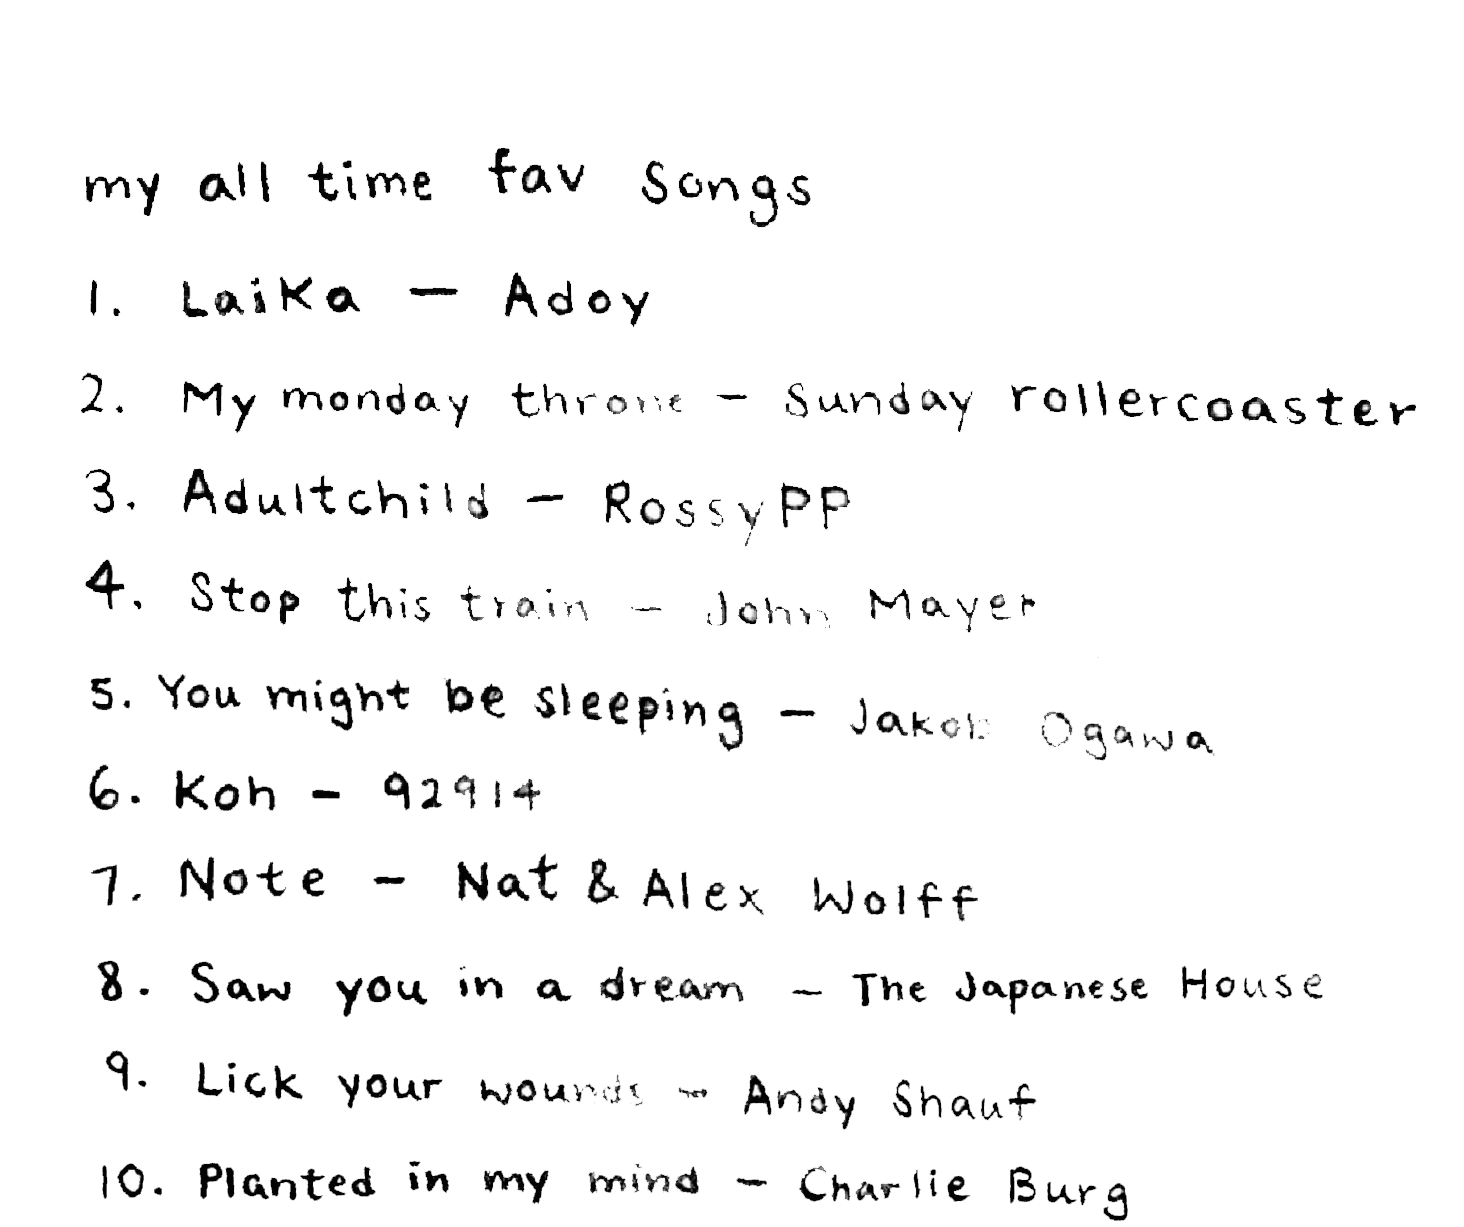 my all time fav songs
1. Laika - Adoy
2. My monday throne - Sunday rollercoaster
3. Adultchild - RossyPP
4. Stop this train - John Mayer
5. You might be sleeping - Jakob Ogawa
6. Koh - 92914
7. Note - Nat & Alex Wolff
8. Saw you in a dream - The Japanese House
9. Lick your wounds - Andy Shauf
10. Planted in my mind - Charlie Burg